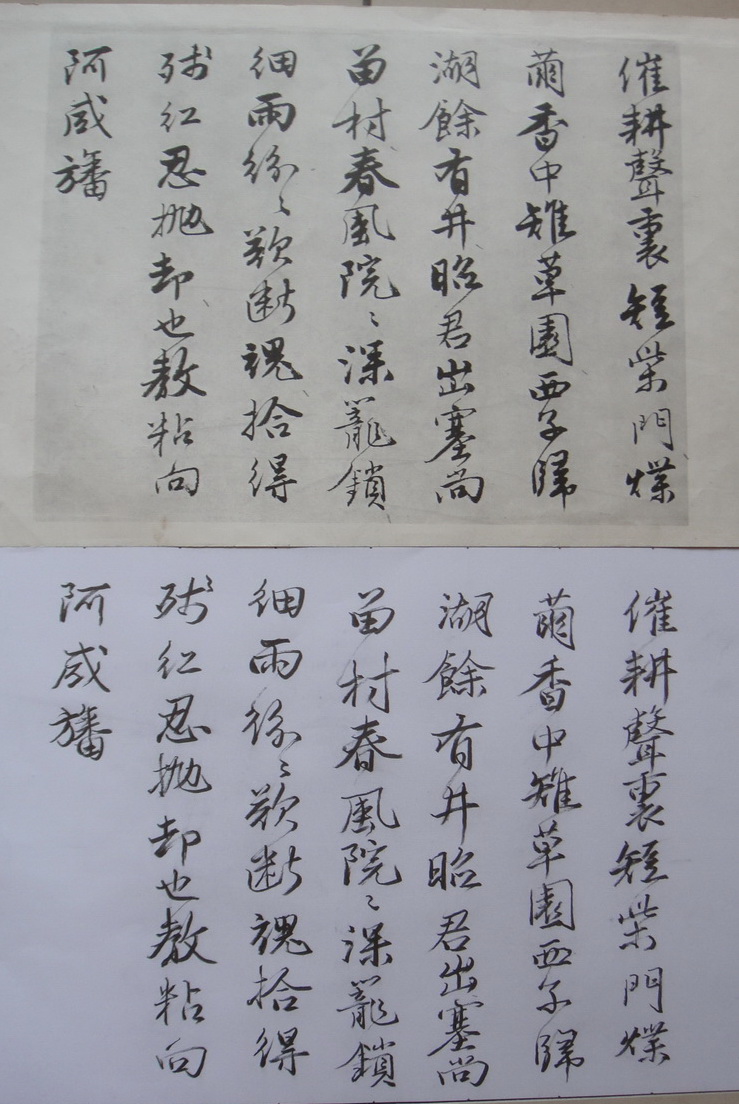 催耕聲裏短柴門蝶
繭香中雉草園西子歸
湖餘有井昭君出塞尚
留村春風院〻深籠鎖
細雨絲〻欲斷魂拾得
殘紅忍拋却也教粘向
阿咸旛
催耕聲裏短柴門蝶
繭香中雉草園西子歸
湖餘有井昭君出塞尚
留村春風院〻深籠鎖
細雨絲〻欲斷魂拾得
殘紅忍拋却也教粘向
阿咸旛